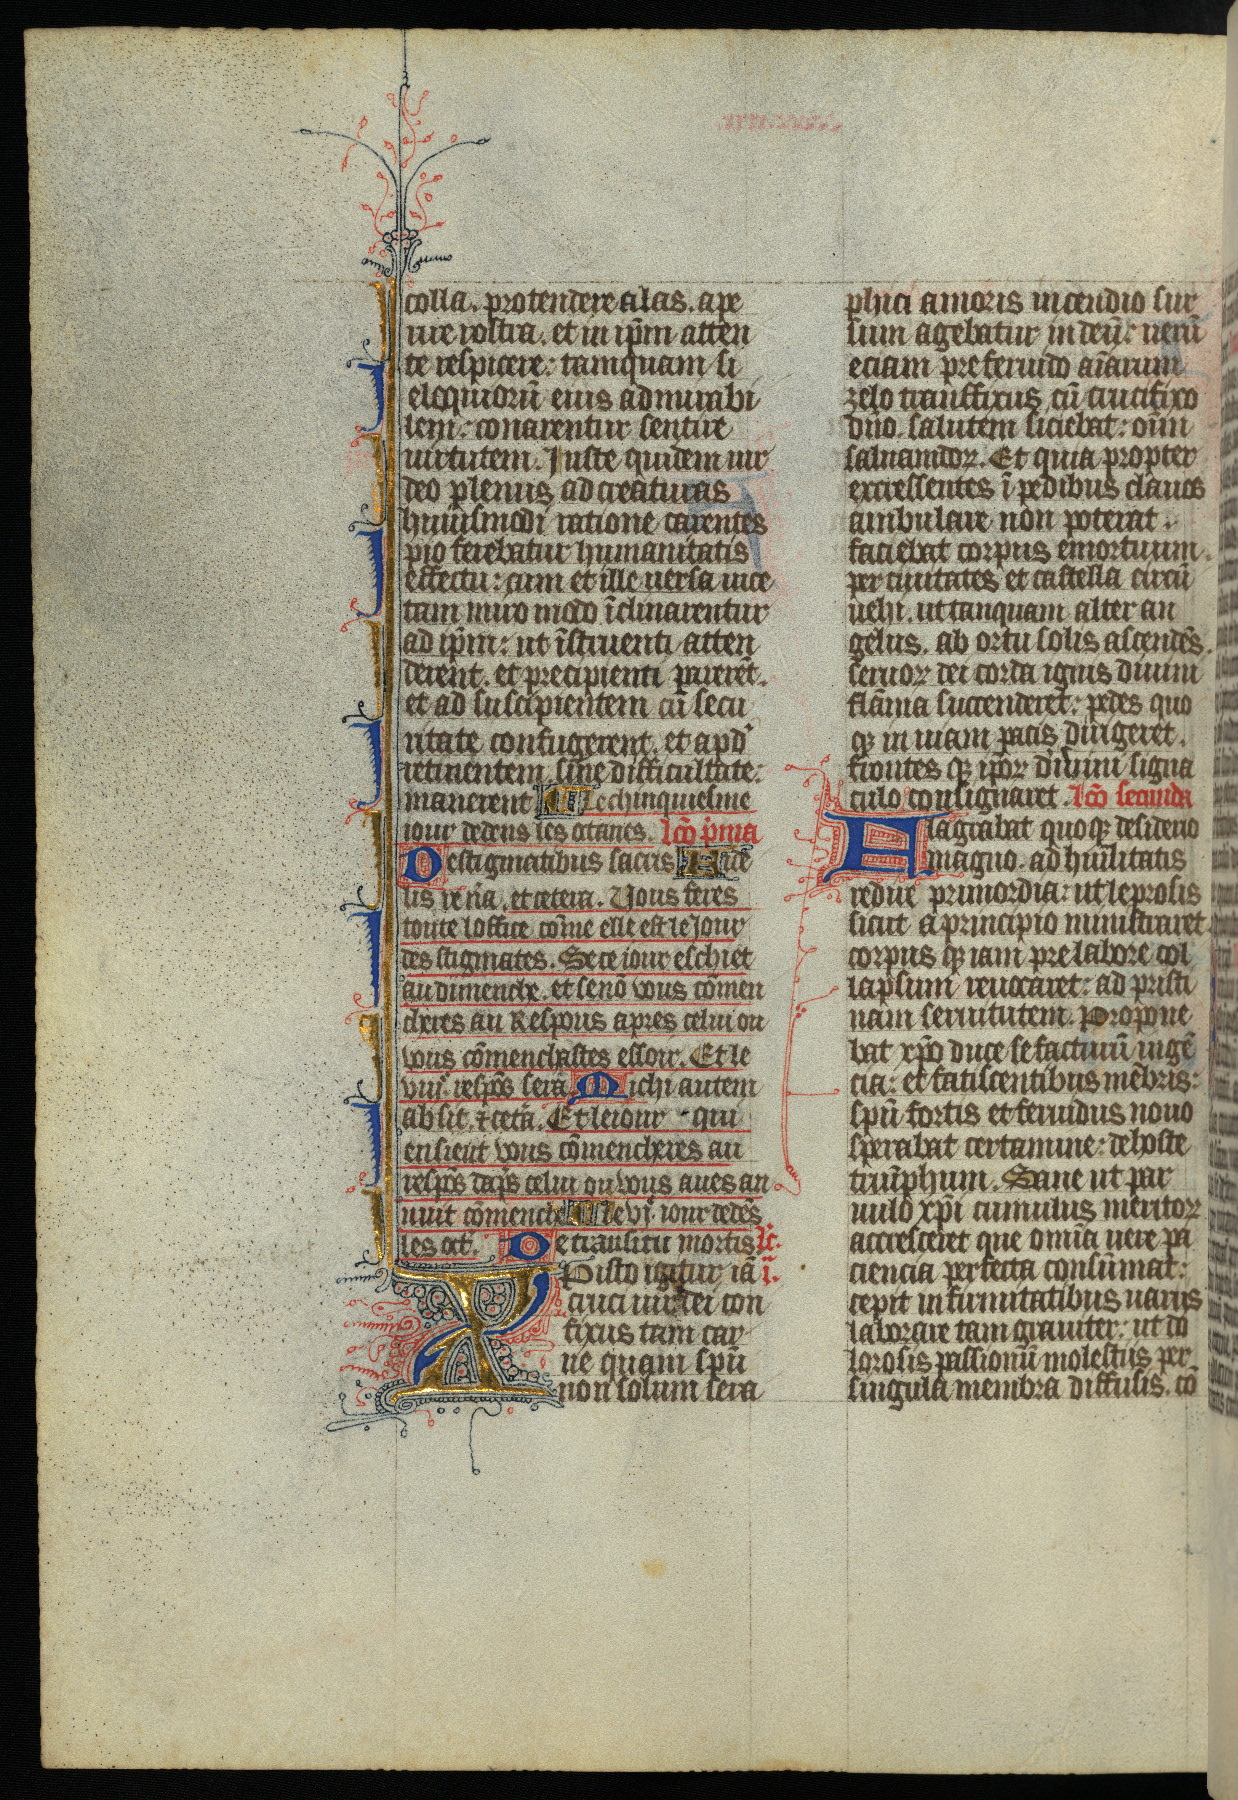 colla. protendere alas. ape
rire rostra. et in ip̄m atten
te respicere: tamquam si
eloquiorū eius admirabi
lem: conarentur sentire
uirtutem. Iuste quidem uir
deo plenus ad creaturas
huiusmodi ratione carentes
pio ferebatur humanitatis
effectu: cum et ille uersa uice
tam miro modo īclinarentur
ad ip̄m: ut īstruenti atten
derent. et precipienti parerēt.
et ad suscipientem cū secu
ritate confugerent. et apd̕
retinentem sine difficultate:
manerent Le chinquiesme
iour dedens les otaues. Lc̄o p̄ma
De stigmatibus sacris
lis re n̄a. et cetera. Vous feres
toute loffice cōme elle est le Jour
des stigmates. Se ce iour eschiet
au dimenche. et se nō vous cōmen
cheres au Respons apres celui ou
vous cōmenchastes essour. Et le
viijͤ. respōs sera Michi autem
absit. et cetā. Et le iour qui
ensieut vous cōmencheres au
respōs dap̄s celui ou vous aues an
nuit cōmenche Le vjͤ. iour dedēs
les oct. De transitu mortis Lc̄.
Xpisto igitur iā j.
cruci uir dei con
fixus tam car
ne quam spū
non solum sera
phici amoris incendio sur
sum agebatur in deū: uerū
eciam pre feruido aīarum
zelo transfixus cū crucifixo
dn̄o. salutem siciebat: oīm
saluandoꝝ. Et quia propter
excressentes ī pedibus clauos
ambulare non poterat.
faciebat corpus emortuum.
per ciuitates et castella circū
uehi. ut tanquam alter an
gelus. ab ortu solis ascendēs.
seruoꝝ dei corda ignis diuini
flāma succenderet: pedes quo
qꝫ in uiam pacis dirigeret.
frontes qꝫ ip̄oꝝ d̕i uiui signa
culo consignaret. Lc̄o secunda
Flagrabat quoqꝫ desiderio
magno. ad hūilitatis
redire primordia: ut leprosis
sicut a principio ministraret
corpus qꝫ iam pre labore col
lapsum reuocaret: ad pristi
nam seruitutem. Propone
bat xp̄o duce se facturū ingē
cia: et fatiscentibus mēbris:
spū fortis et feruidus nouo
sperabat certamine: de hoste
triūphum. Sane ut par
uulo xp̄i cumulus meritoꝝ
accresceret que omīa uere pa
ciencia perfecta consūmat:
cepit infirmitatibus uariis
laborare tam grauiter: ut do
lorosis passionū molestiis per
singula membra diffusis. cō